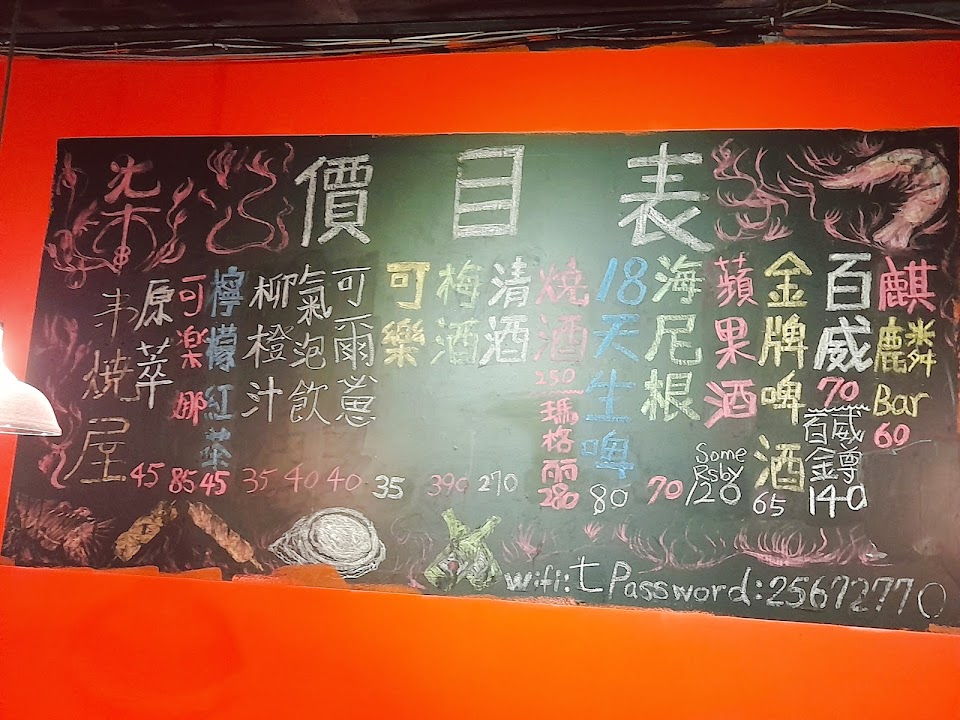 價目表
麒麟Bar 60
百威 70
百威金樽 140
金牌啤酒 65
蘋果酒 Somersby 120
海尼根 70
18天生啤 80
燒酒 250
瑪格丽 280
清酒 270
梅酒 390
可樂 35
可爾蔥 40
氣泡飲 40
柳橙汁 35
檸檬紅茶 45
可樂娜 85
原萃 45
燒屋
wifi:t Password:25672770